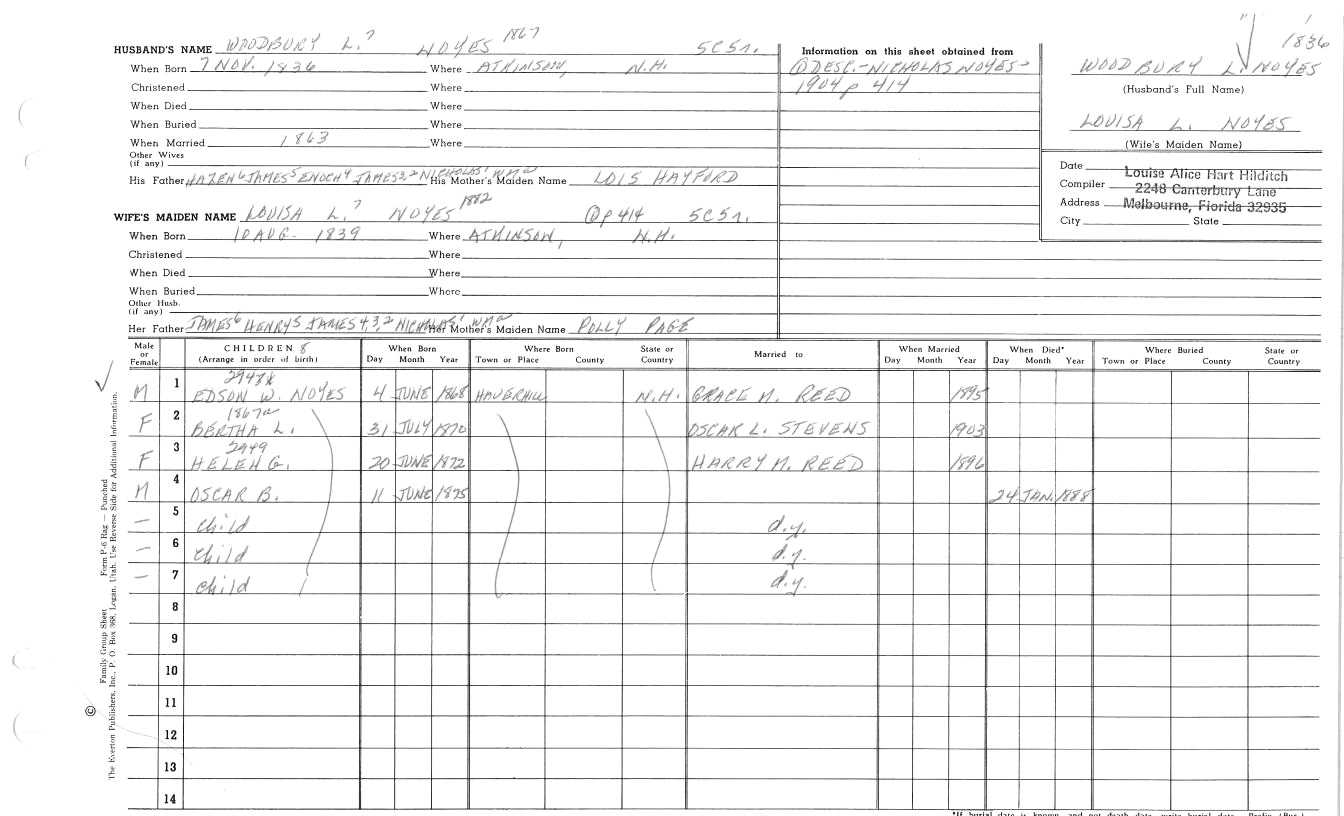 HUSBAND'S NAME WOODBURY L.7 NOYES 1867 5C5n.
When Born 7 NOV. 1836 Where ATKINSON, N.H.
Christened Where
When Died Where
When Buried Where
When Married 1863 Where
Other Wives
(if any)
His Father HAZEN6 JAMES5 ENOCH4 JAMES3,2 NICHOLAS1 WMa His Mother's Maiden Name LOIS HAYFORD
WIFE'S MAIDEN NAME LOUISA L.7 NOYES 1882 @p414 5C5n.
When Born 10 AUG. 1839 Where ATKINSON, N.H.
Christened Where
When Died Where
When Buried Where
Other Husb.
(if any)
Her Father JAMES6 HENRY5 JAMES4,3,2 NICHOLAS1 WMa Her Mother's Maiden Name POLLY PAGE
Information on this sheet obtained from
@DESC.-NICHOLAS NOYES-
1904 p 414
1836
WOODBURY L. NOYES
(Husband's Full Name)
LOUISA L. NOYES
(Wife's Maiden Name)
Date
Compiler
Address
City State
Louise Alice Hart Hilditch
2248 Canterbury Lane
Melbourne, Florida 32935
Male or Female
CHILDREN 8
(Arrange in order of birth)
When Born
Day Month Year
Where Born
Town or Place County
State or Country
Married to
When Married
Day Month Year
When Died*
Day Month Year
Where Buried
Town or Place County
State or Country
M 1 EDSON W. NOYES 4 JUNE 1868 HAVERHILL N.H. GRACE M. REED 1895
1867a
F 2 BERTHA L. 31 JULY 1870 OSCAR L. STEVENS 1903
2949
F 3 HELEN G. 20 JUNE 1872 HARRY M. REED 1896
M 4 OSCAR B. 11 JUNE 1875 24 JAN. 1888
— 5 child d.y.
— 6 child d.y.
— 7 child d.y.
8
9
10
11
12
13
14
Family Group Sheet Form P-6 Rag — Punched
© The Everton Publishers, Inc., P. O. Box 368, Logan, Utah. Use Reverse Side for Additional Information.